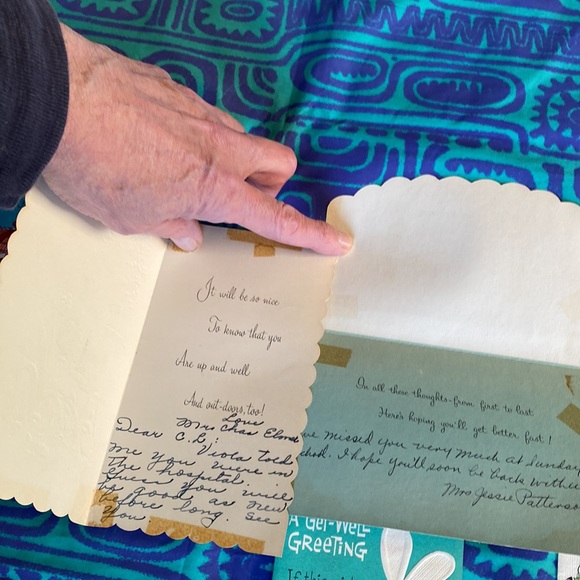 It will be so nice
To know that you
Are up and well
And out-doors, too!
Love
Mrs Chas Elmo
Dear C.G.:
Viola told
me you were in
the hospital.
Guess you will
be good as new
before long. See
you.
In all these thoughts-from first to last
Here's hoping you'll get better fast!
missed you very much at Sunday
I hope you'll soon be back with u
Mrs. Jessie Pattenso
A GET-WELL
GREETING
If this